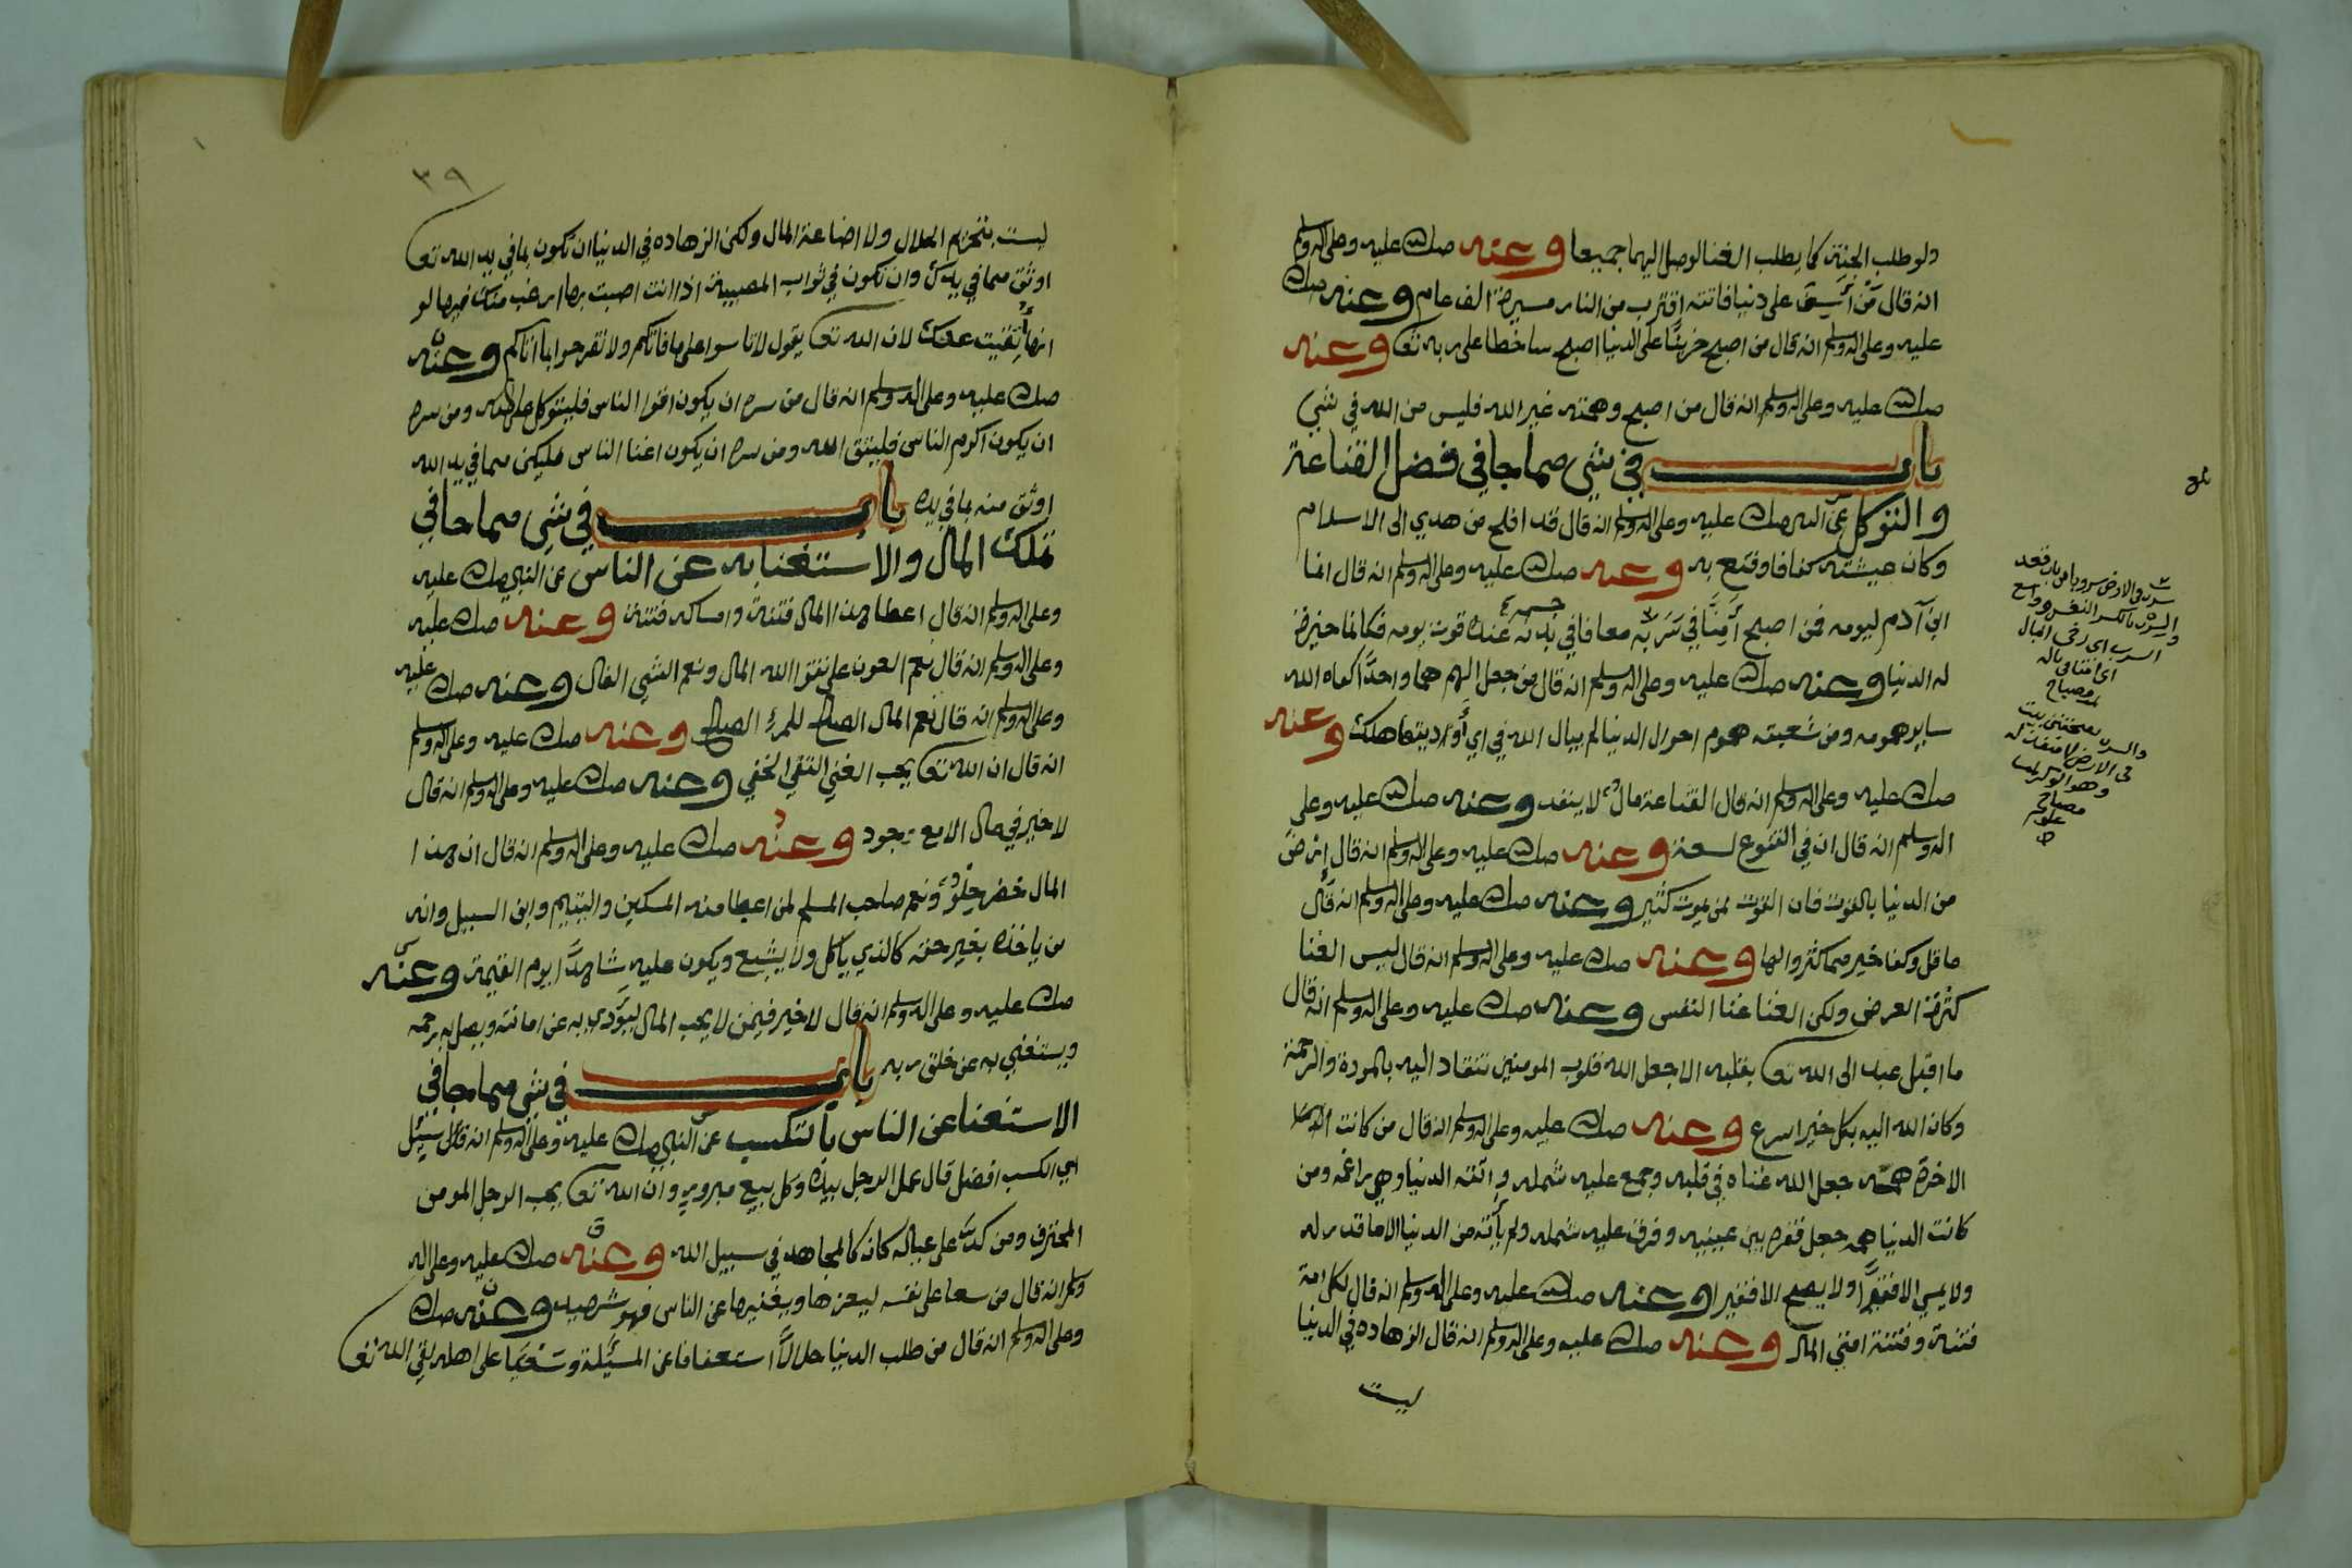 ولو طلب الجنة كما يطلب الغنا لوصل اليهما جميعا وعنه صلى الله عليه وعلى اله وسلم
انه قال مَنْ أَسِفَ على دنيا فاتته اقترب من النار مسيرة الف عام وعنه صلى الله
عليه وعلى اله وسلم انه قال من اصبح حزينًا على الدنيا اصبح ساخطا على ربه تعا وعنه
صلى الله عليه وعلى اله وسلم انه قال من اصبح وهمته غير الله فليس من الله في شي
باب في شي مما جا في فضل القناعة
والتوكل عن النبي صلى الله عليه وعلى اله وسلم انه قال قد افلح من هدي الى الاسلام
وكان عيشته كفافا وقنع به وعنه صلى الله عليه وعلى اله وسلم انه قال انما
ابن آدم ليومه فمن اصبح آمِنًا في سَرَبه معافا في بدنه عنده قوت يومه فكانما خيرت
جسمه
له الدنيا وعنه صلى الله عليه وعلى اله وسلم انه قال من جعل الهم هما واحدًا كفاه الله
ساير همومه ومن شعبته هموم احوال الدنيا لم يبال الله في اي أوديتها هلك وعنه
صلى الله عليه وعلى اله وسلم انه قال القناعة مال لا ينفد وعنه صلى الله عليه وعلى
اله وسلم انه قال ان في القنوع لسعة وعنه صلى الله عليه وعلى اله وسلم انه قال إرضَ
من الدنيا بالقوت فان القوت لمن يموت كثير وعنه صلى الله عليه وعلى اله وسلم انه قال
ما قل وكفا خير مما كثر والها وعنه صلى الله عليه وعلى اله وسلم انه قال ليس الغنا
كثرة العرض ولكن الغنا غنا النفس وعنه صلى الله عليه وعلى اله وسلم انه قال
ما اقبل عبد الى الله تعا بقلبه الا جعل الله قلوب المومنين تنقاد اليه بالمودة والرحمة
وكان الله اليه بكل خير اسرع وعنه صلى الله عليه وعلى اله وسلم انه قال من كانت
الاخرة همته جعل الله غناه في قلبه وجمع عليه شمله واتته الدنيا وهي راغمه ومن
كانت الدنيا همه جعل فقره بين عينيه وفرق عليه شمله ولم يأته من الدنيا الا ما قدر له
ولا يمسي الا فقيرًا ولا يصبح الا فقيرا وعنه صلى الله عليه وعلى اله وسلم انه قال لكل امة
فتنة وفتنة امتي المال وعنه صلى الله عليه وعلى اله وسلم انه قال الزهاده في الدنيا
ليست
سرب في الارض سروبا من باب قعد
والسرب بالكسر النفس وواسع
السرب اي رخي البال
اي امنا في باله
مصباح
والسرب بفتحتين بيت
في الارض لا منفذ له
وهو الوكر
مصباح
٣٩
ليست بتحريم الحلال ولا اضاعة المال ولكن الزهاده في الدنيا ان تكون بما في يد الله تعا
اوثق مما في يدك وان تكون في ثواب المصيبة اذا انت اصبت بها ارغب منك فيها لو
انها أبقيت عليك لان الله تعا يقول لا تاسوا على ما فاتكم ولا تفرحوا بما اتاكم وعنه
صلى الله عليه وعلى اله وسلم انه قال من سره ان يكون اقوا الناس فليتوكل على الله ومن سره
ان يكون اكرم الناس فليتق الله ومن سره ان يكون اغنا الناس فليكن بما في يد الله
اوثق منه بما في يده باب في شي مما جا في
تملك المال والاستغنا به عن الناس عن النبي صلى الله عليه
وعلى اله وسلم انه قال اعطا هذا المال فتنة وامساكه فتنة وعنه صلى الله عليه
وعلى اله وسلم انه قال نعم العون على تقوا الله المال ونعم الشي الفال وعنه صلى الله عليه
وعلى اله وسلم انه قال نعم المال الصالح للمرء الصالح وعنه صلى الله عليه وعلى اله وسلم
انه قال ان الله تعا يحب الغني التقي الخفي وعنه صلى الله عليه وعلى اله وسلم انه قال
لا خير في مال الا مع جود وعنه صلى الله عليه وعلى اله وسلم انه قال ان هذا
المال خضر حلو ونعم صاحب المسلم لمن اعطا منه المسكين واليتيم وابن السبيل وانه
من ياخذه بغير حقه كالذي ياكل ولا يشبع ويكون عليه شاهدًا يوم القيمة وعنه
صلى الله عليه وعلى اله وسلم انه قال لا خير فيمن لا يحب المال ليؤدي به عن امانته ويصل به رحمه
ويستغني به عن خلق ربه باب في شي مما جا في
الاستغنا عن الناس بالتكسب عن النبي صلى الله عليه وعلى اله وسلم انه قال سيئل
اي الكسب افضل قال عمل الرجل بيده وكل بيع مبرور وان الله تعا يحب الرجل المومن
المحترف ومن كدّ على عياله كان كالمجاهد في سبيل الله وعنه صلى الله عليه وعلى اله
وسلم انه قال من سعا على نفسه ليعزها ويغنيها عن الناس فهو شهيد وعنه صلى الله
وعلى اله وسلم انه قال من طلب الدنيا حلالًا استعفافا عن المسيلة وسعيا على اهله لقي الله تعا